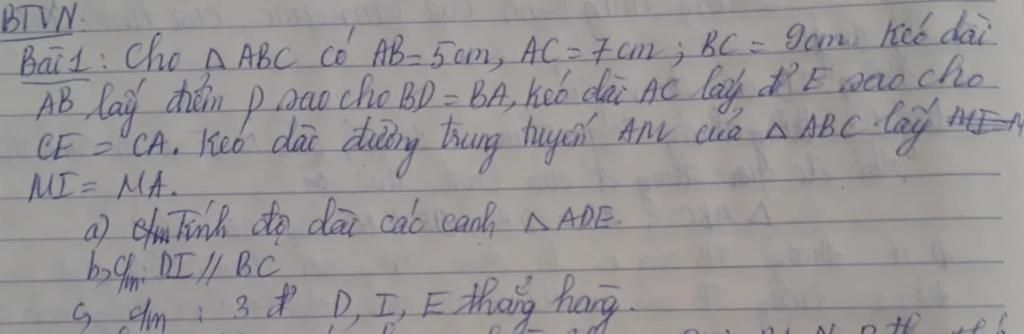 BTVN.
Bài 1: Cho △ABC có AB = 5cm, AC = 7cm; BC = 9cm. Kéo dài
AB lấy điểm D sao cho BD = BA, kéo dài AC lấy đ' E sao cho
CE = CA. Kéo dài đường trung tuyến AM của △ABC lấy
MI = MA.
a) Tính độ dài các cạnh △ADE.
b, c/m: DI // BC
c, c/m: 3 đ' D, I, E thẳng hàng.